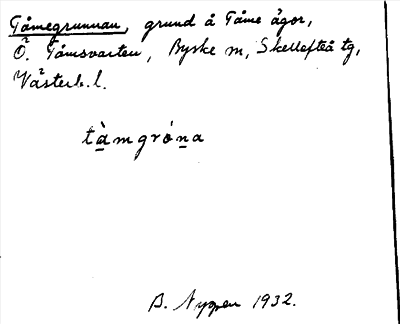 Tåmegrunnan, grund å Tåme ägor,
Ö. Tåmsvarten, Byske sn, Skellefteå tg,
Västerb. l.
tàmgróna
B. Nygren 1932.